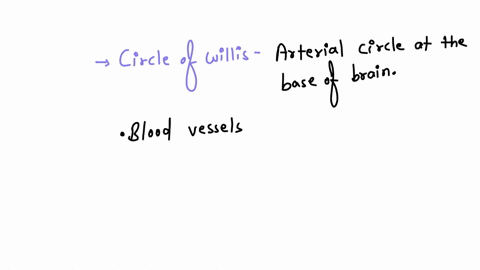 → Circle of willis - Arterial circle at the
base of brain.
• Blood vessels